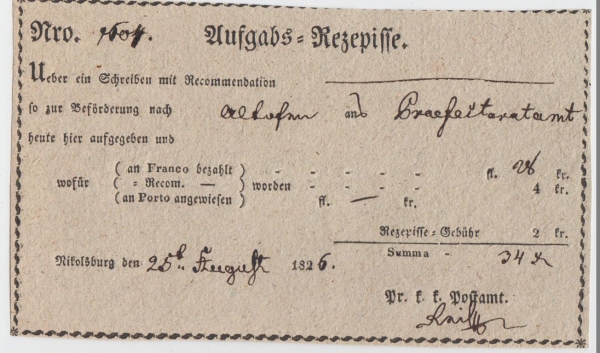 Nro. 1604. Aufgabs-Rezepisse.
Ueber ein Schreiben mit Recommendation
so zur Beförderung nach Altofen ans Praefecturatamt
heute hier aufgegeben und
(an Franco bezahlt) - - - - - fl. 28 kr.
wofür ( = Recom. — ) worden - - - - 4 kr.
(an Porto angewiesen) fl. — kr.
Rezepisse-Gebühr 2 kr.
Summa - 34 x
Nikolsburg den 25t August 1826.
Pr. k. k. Postamt.